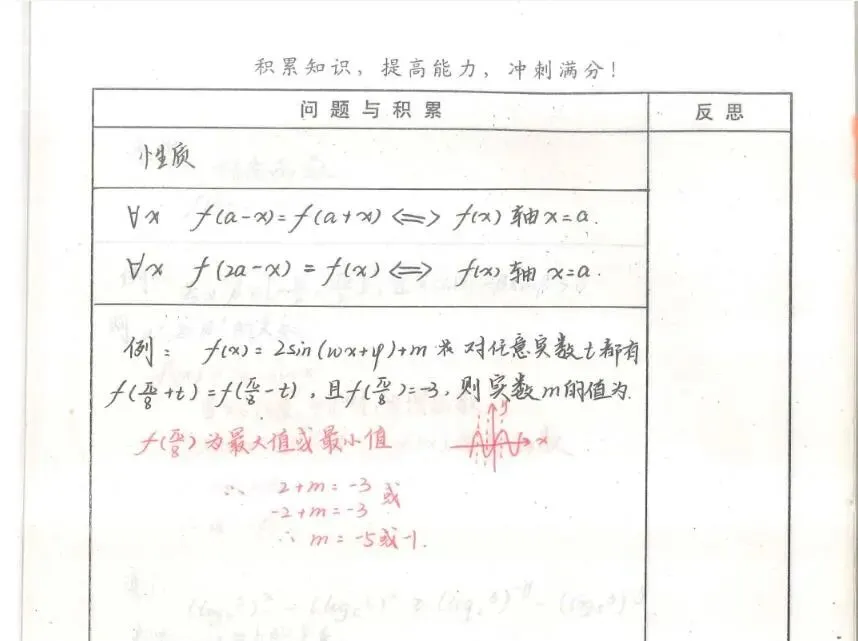 积累知识，提高能力，冲刺满分！
问题与积累
反思
性质
∀x f(a-x)=f(a+x)⟺f(x)轴x=a.
∀x f(2a-x)=f(x)⟺f(x)轴x=a.
例：f(x)=2sin(wx+φ)+m 对任意实数t都有
f(π/8+t)=f(π/8-t)，且f(π/8)=-3，则实数m的值为.
f(π/8)为最大值或最小值
y
x
∴ 2+m=-3 或
-2+m=-3
∴ m=-5或-1.